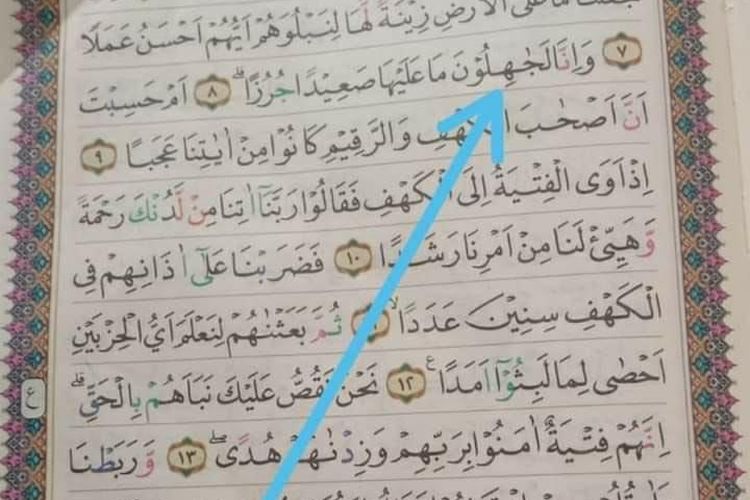 مَا عَلَى الْاَرْضِ زِيْنَةً لَّهَا لِنَبْلُوَهُمْ اَيُّهُمْ اَحْسَنُ عَمَلًا
﴿٧﴾ وَاِنَّا لَجٰهِلُوْنَ مَا عَلَيْهَا صَعِيْدًا جُرُزًا ۗ ﴿٨﴾ اَمْ حَسِبْتَ
اَنَّ اَصْحٰبَ الْكَهْفِ وَالرَّقِيْمِ كَانُوْا مِنْ اٰيٰتِنَا عَجَبًا ﴿٩﴾
اِذْ اَوَى الْفِتْيَةُ اِلَى الْكَهْفِ فَقَالُوْا رَبَّنَآ اٰتِنَا مِنْ لَّدُنْكَ رَحْمَةً
وَّهَيِّئْ لَنَا مِنْ اَمْرِنَا رَشَدًا ﴿١٠﴾ فَضَرَبْنَا عَلٰٓى اٰذَانِهِمْ فِى
الْكَهْفِ سِنِيْنَ عَدَدًا ۙ ﴿١١﴾ ثُمَّ بَعَثْنٰهُمْ لِنَعْلَمَ اَيُّ الْحِزْبَيْنِ
اَحْصٰى لِمَا لَبِثُوْٓا اَمَدًا ࣖ ﴿١٢﴾ نَحْنُ نَقُصُّ عَلَيْكَ نَبَاَهُمْ بِالْحَقِّ ۗ
ع
اِنَّهُمْ فِتْيَةٌ اٰمَنُوْا بِرَبِّهِمْ وَزِدْنٰهُمْ هُدًى ۖ ﴿١٣﴾ وَّرَبَطْنَا